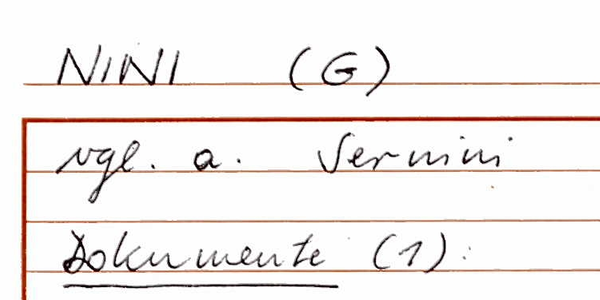 NINI (G)
vgl. a. Sernini
Dokumente (1):